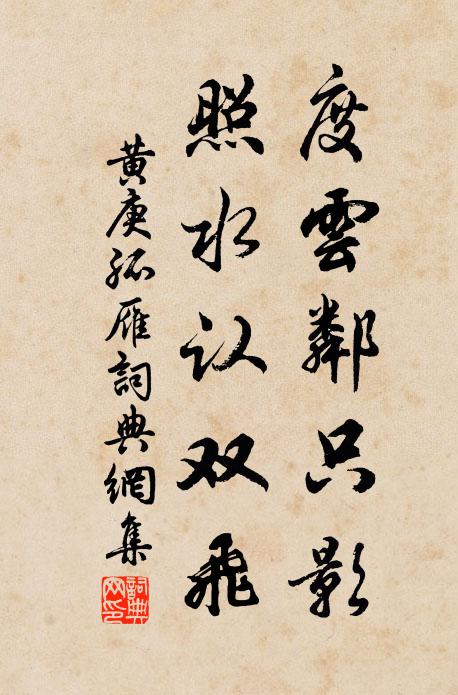 度雲鄰只影
照水认双飛
黄庚孤雁詞典網集
詞典网印